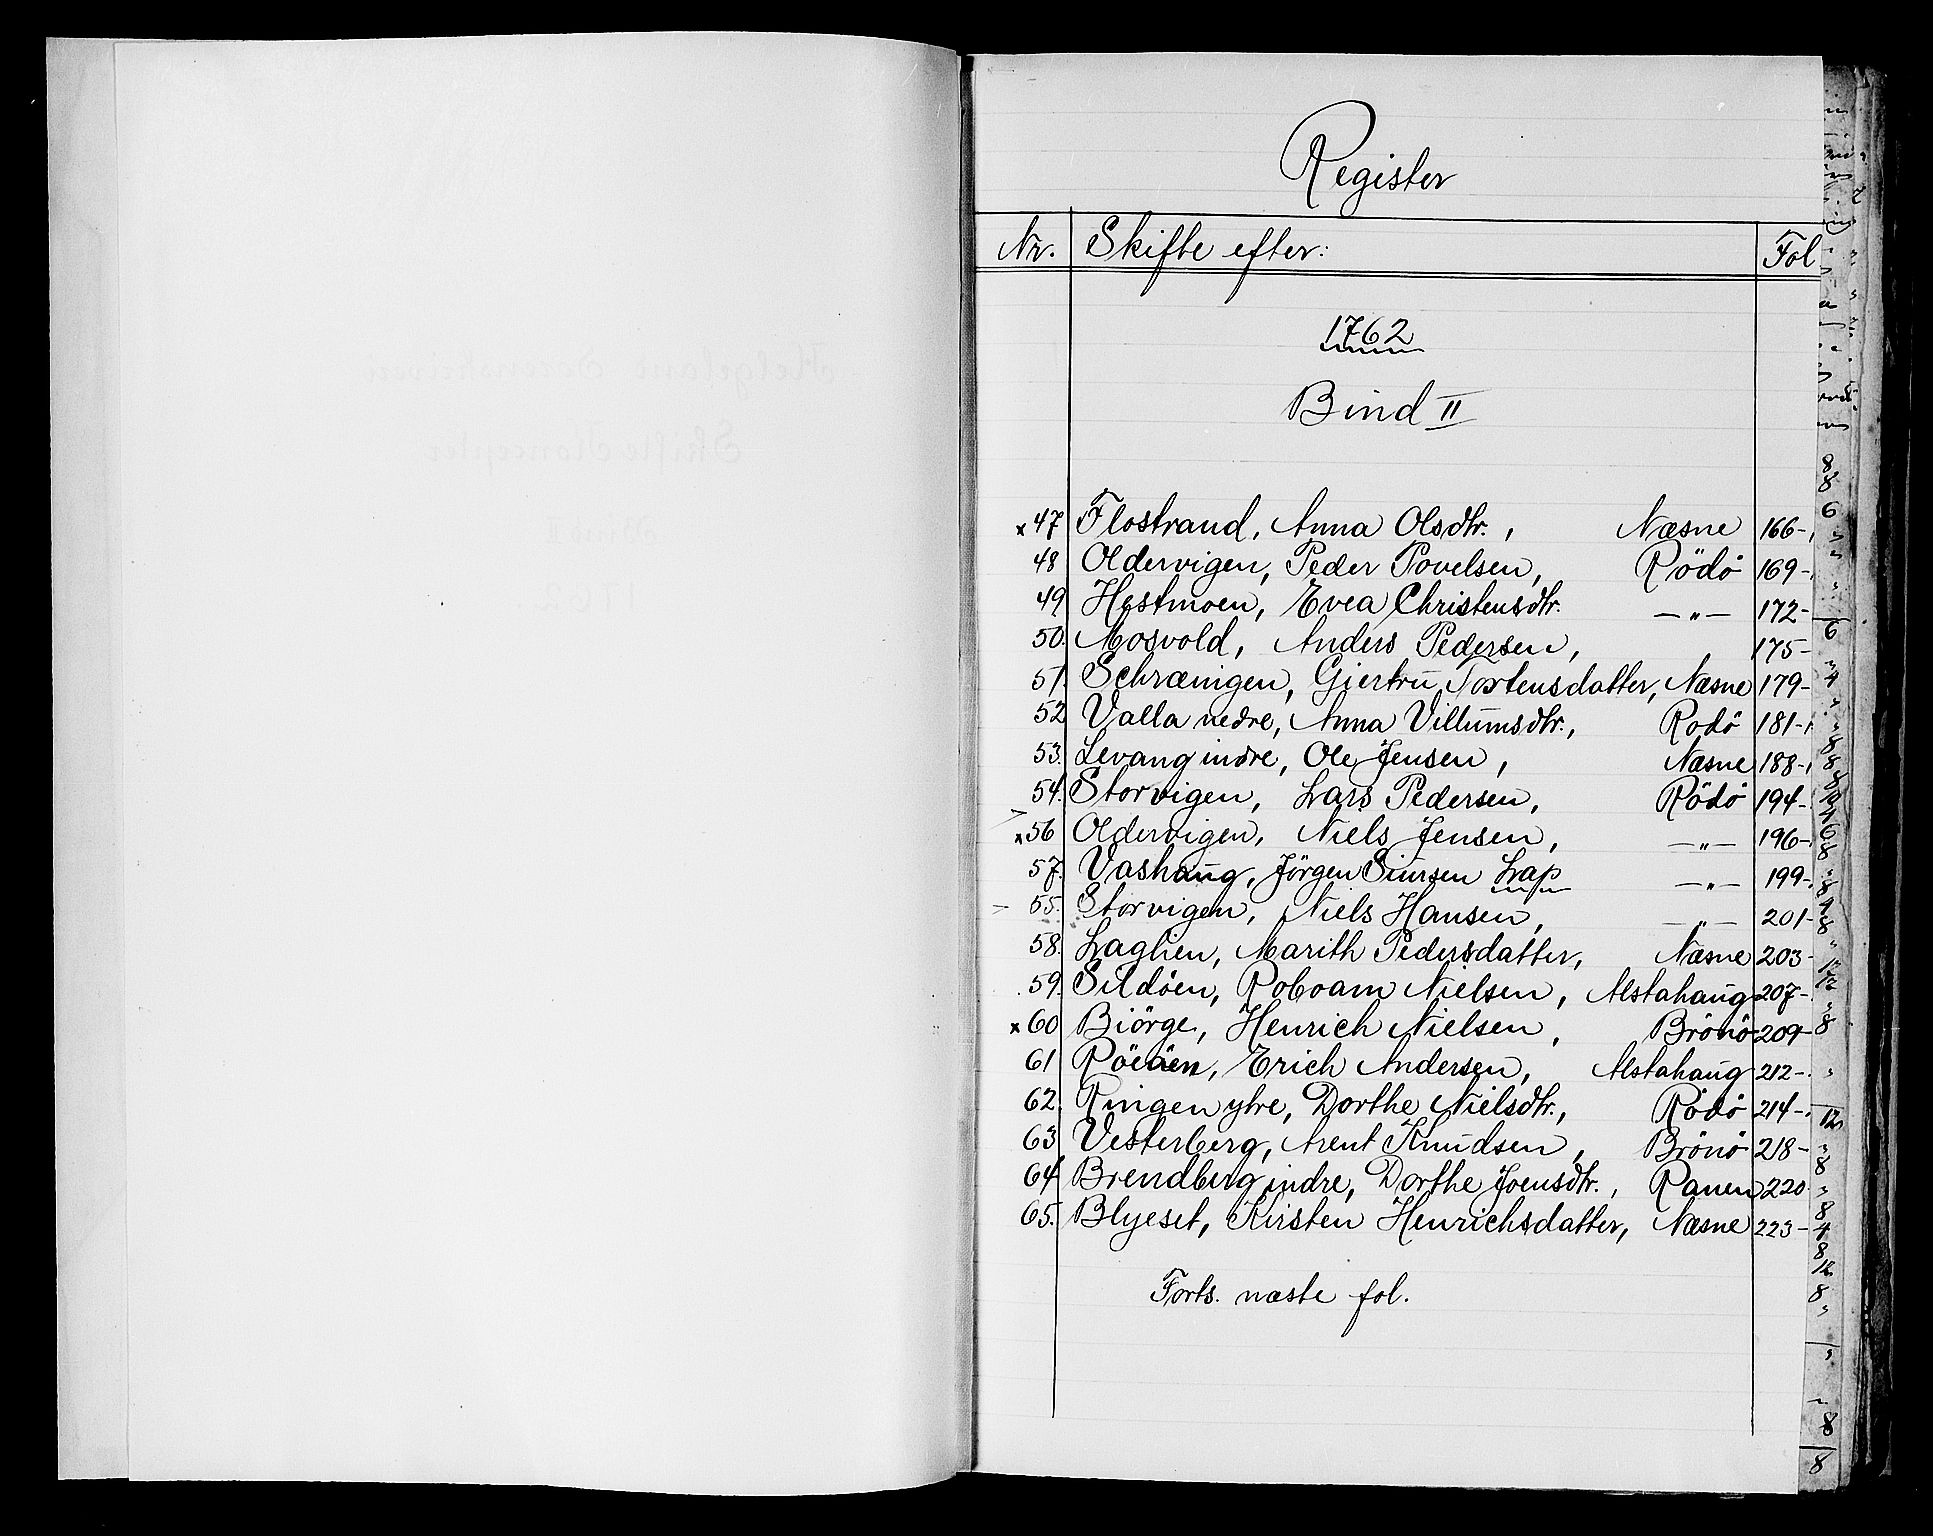 Register
Nr. Skifte efter: Fol
1762
Bind II
x 47 Flostrand, Anna Olsdtr., Næsne 166-
48 Oldervigen, Peder Povelsen, Rödö 169-
49 Hestmoen, Evea Christensdtr. —"— 172-
50. Mosvold, Anders Pedersen, 175-
51. Schrænigen, Giertru Tostensdatter, Næsne 179-
52 Valla nedre, Anna Villumsdtr., Rodö 181-
53. Levang indre, Ole Jensen, Næsne 188-
54. Storvigen, Lars Pedersen, Rödö 194-
x 56 Oldervigen, Niels Jensen, —"— 196-
57. Vashaug, Jörgen Siursen Lap —"— 199-
55. Storvigen, Niels Hansen, —"— 201-
58. Laglien, Marith Pedersdatter, Næsne 203-
59. Sildöen, Roboam Nielsen, Alstahaug 207-
x 60 Biörge, Henrich Nielsen, Brönö 209-
61 Röeöen, Erich Andersen, Alstahaug 212-
62. Ringen ytre, Dorthe Nielsdtr., Rödö 214-
63 Vesterberg, Arent Knudsen, Brönö 218-
64 Brendberg indre, Dorthe Joensdtr., Ranen 220
65. Blyeset, Kirsten Henrichsdatter, Næsne 223-
Forts. næste fol.